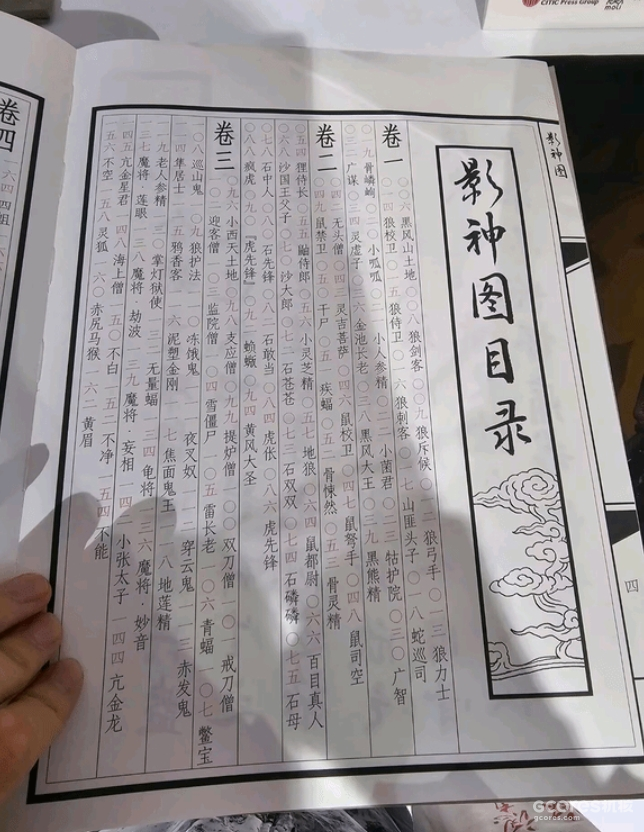 影神图
四
影神图目录
卷一
〇〇六 黑风山土地 〇〇八 狼剑客 〇〇九 狼斥候 〇一二 狼弓手 〇一三 狼力士
〇一四 狼校卫 〇一五 狼侍卫 〇一六 狼刺客 〇一七 山匪头子 〇一八 蛇巡司
〇一九 骨嶙峋 〇二〇 小呱呱 小人参精 〇二二 小菌君 〇二三 牯护院 〇三〇 广智
〇三二 广谋 〇三四 灵虚子 〇三六 金池长老 〇三八 黑风大王 〇三九 黑熊精
卷二
〇四〇 无头僧 灵吉菩萨 〇四六 鼠校卫 〇四七 鼠弩手 〇四八 鼠司空
〇四九 鼠禁卫 〇五〇 干尸 〇五一 疾蝠 〇五二 骨悚然 〇五三 骨灵精
〇五四 狸侍长 〇五五 鼬侍郎 〇五六 小灵芝精 〇五七 地狼 〇六四 鼠都尉 〇六六 百目真人
〇六八 沙国王父子 〇七〇 沙大郎 〇七一 石苍苍 〇七三 石双双 〇七四 石磷磷 〇七五 石母
〇七八 石中人 〇八〇 石先锋 〇八一 石敢当 〇八四 虎伥 〇八六 虎先锋
〇八八 疯虎 〇九〇 『虎先锋』 〇九二 蝜蝂 〇九四 黄风大圣
卷三
〇九六 小西天土地 〇九八 支应僧 〇九九 提炉僧 一〇〇 双刀僧 一〇一 戒刀僧
一〇二 迎客僧 一〇三 监院僧 一〇四 雪僵尸 一〇五 雷长老 一〇六 青蝠 一〇七 鳖宝
一〇八 巡山鬼 一〇九 狼护法 一一〇 冻饿鬼 一一一 夜叉奴 一一二 穿云鬼 一一三 赤发鬼
一一四 隼居士 一一五 鸦香客 一一六 泥塑金刚 一一七 焦面鬼王 一一八 地莲精
一一九 老人参精 一三〇 掌灯狱使 无量蝠 一三四 龟将 一三六 魔将·妙音
一三七 魔将·莲眼 一三八 魔将·劫波 一三九 魔将·妄相 一四二 小张太子 一四四 亢金龙
一四五 亢金星君 一四八 海上僧 一五〇 不白 一五二 不净 一五四 不能
一五六 不空 一五八 灵狐 一六〇 赤尻马猴 一六二 黄眉
卷四
一六四
CITIC Press Group
moli
Gcores机核
gcores.com